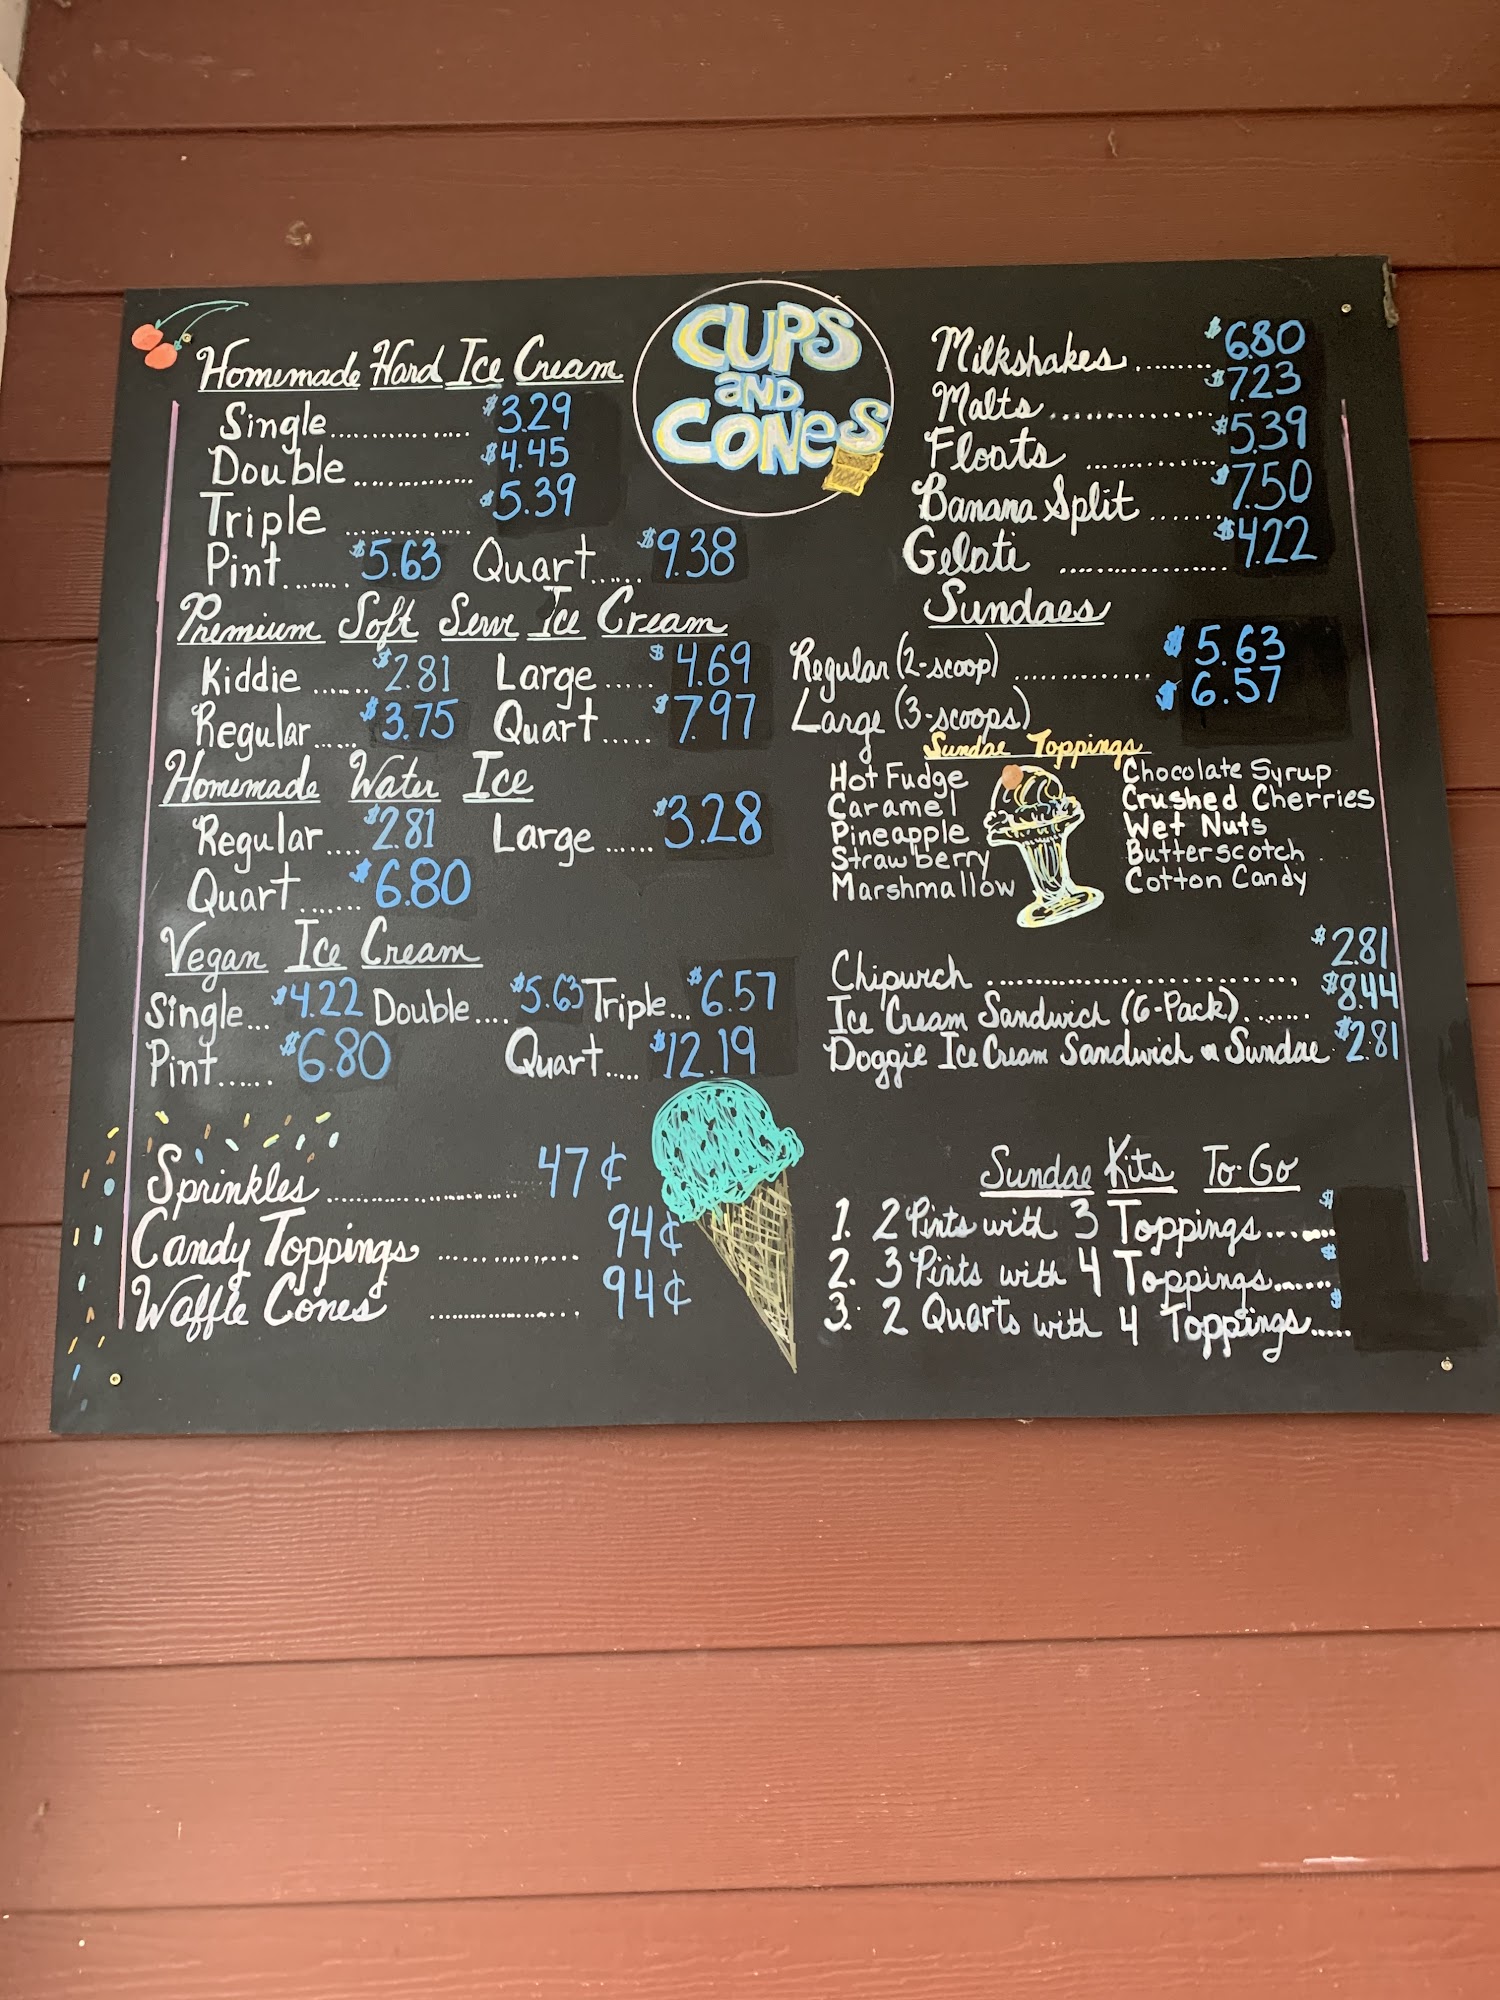 CUPS
AND
CONES
Homemade Hard Ice Cream
Single................ $3.29
Double.............. $4.45
Triple .............. $5.39
Pint....... $5.63 Quart...... $9.38
Premium Soft Serve Ice Cream
Kiddie ....... $2.81 Large ..... $4.69
Regular...... $3.75 Quart ..... $7.97
Homemade Water Ice
Regular.... $2.81 Large ...... $3.28
Quart ....... $6.80
Vegan Ice Cream
Single... $4.22 Double.... $5.63 Triple... $6.57
Pint...... $6.80 Quart..... $12.19
Sprinkles........................ 47¢
Candy Toppings ............... 94¢
Waffle Cones ................ 94¢
Milkshakes......... $6.80
Malts................. $7.23
Floats .............. $5.39
Banana Split ....... $7.50
Gelati .................. $4.22
Sundaes
Regular (2-scoop) .............. $5.63
Large (3-scoops) $6.57
Sundae Toppings
Hot Fudge Chocolate Syrup
Caramel Crushed Cherries
Pineapple Wet Nuts
Strawberry Butterscotch
Marshmallow Cotton Candy
Chipwich ............................... $2.81
Ice Cream Sandwich (6-Pack)....... $8.44
Doggie Ice Cream Sandwich or Sundae $2.81
Sundae Kits To-Go
1. 2 Pints with 3 Toppings....... $
2. 3 Pints with 4 Toppings....... $
3. 2 Quarts with 4 Toppings..... $